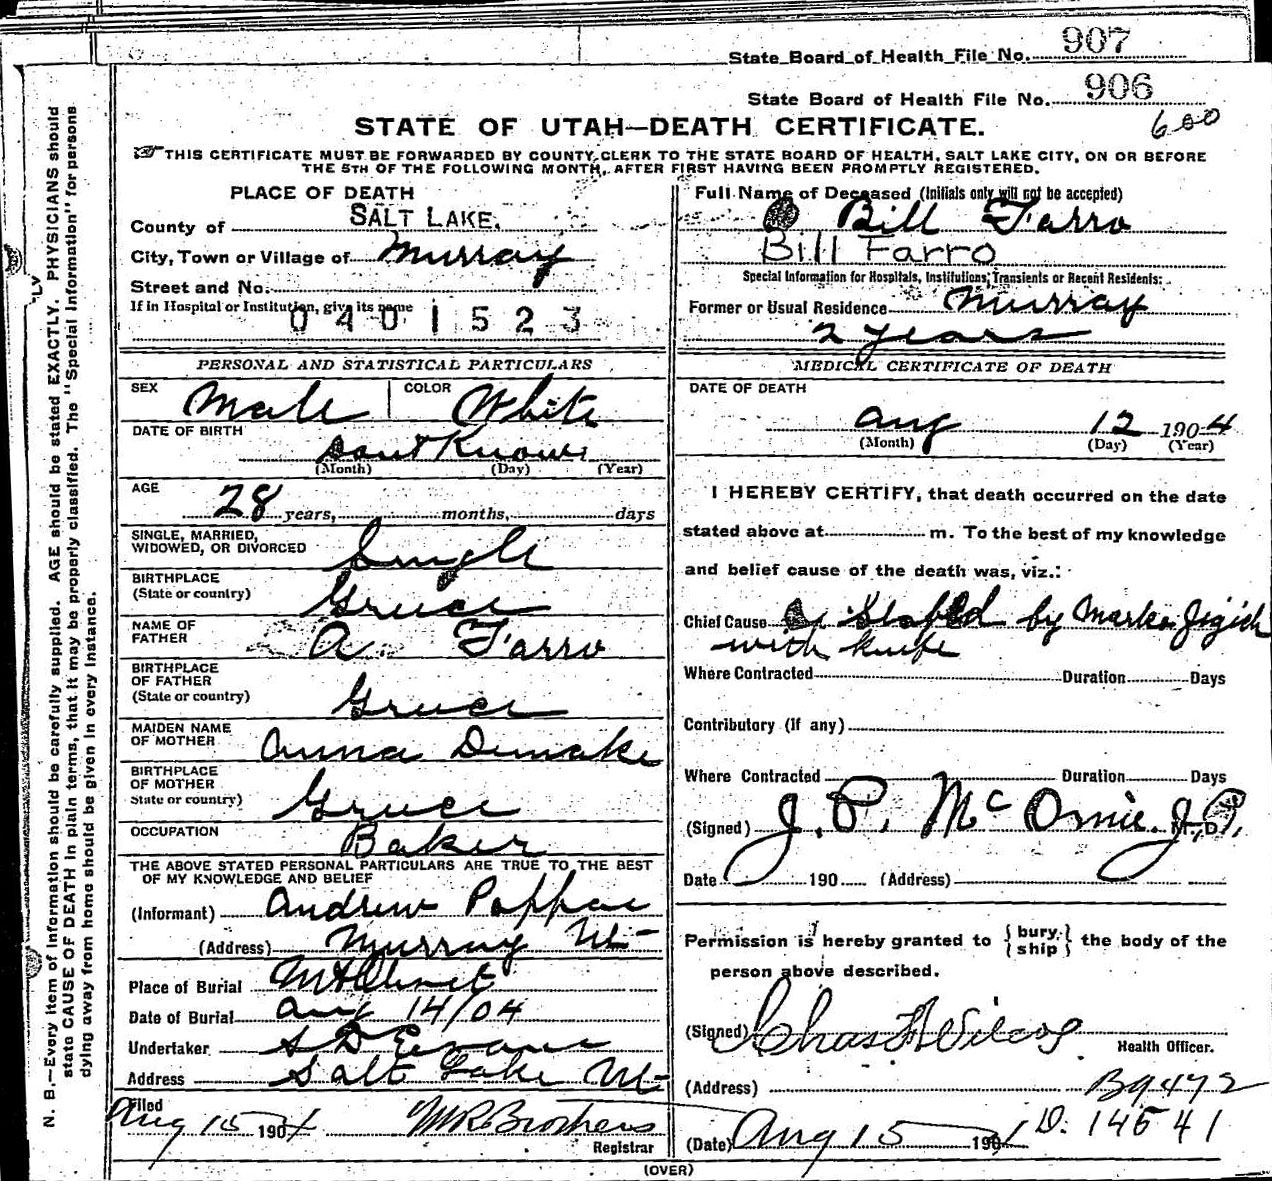 State Board of Health File No. 907
State Board of Health File No. 906
600
STATE OF UTAH—DEATH CERTIFICATE.
THIS CERTIFICATE MUST BE FORWARDED BY COUNTY CLERK TO THE STATE BOARD OF HEALTH, SALT LAKE CITY, ON OR BEFORE
THE 5TH OF THE FOLLOWING MONTH, AFTER FIRST HAVING BEEN PROMPTLY REGISTERED.
N. B.—Every item of information should be carefully supplied. AGE should be stated EXACTLY. PHYSICIANS should
state CAUSE OF DEATH in plain terms, that it may be properly classified. The "Special Information" for persons
dying away from home should be given in every instance.
PLACE OF DEATH
County of SALT LAKE.
City, Town or Village of Murray
Street and No.
If in Hospital or Institution, give its name
0401523
PERSONAL AND STATISTICAL PARTICULARS
SEX Male COLOR White
DATE OF BIRTH
dont Know
(Month) (Day) (Year)
AGE
28 years, months, days
SINGLE, MARRIED,
WIDOWED, OR DIVORCED Single
BIRTHPLACE
(State or country) Greece
NAME OF
FATHER A Farro
BIRTHPLACE
OF FATHER
(State or country) Greece
MAIDEN NAME
OF MOTHER Anna Demake
BIRTHPLACE
OF MOTHER
State or country) Greece
OCCUPATION Baker
THE ABOVE STATED PERSONAL PARTICULARS ARE TRUE TO THE BEST
OF MY KNOWLEDGE AND BELIEF
(Informant) Andrew Pappas
(Address) Murray Ut
Place of Burial Mt Olivet
Date of Burial Aug 14/04
Undertaker S D Evans
Address Salt Lake Ut
Filed
Aug 15 1904 M R Brothers
Registrar
Full Name of Deceased (Initials only will not be accepted)
Bill Farro
Bill Farro
Special Information for Hospitals, Institutions, Transients or Recent Residents:
Former or Usual Residence Murray
2 years
MEDICAL CERTIFICATE OF DEATH
DATE OF DEATH
Aug 12 1904
(Month) (Day) (Year)
I HEREBY CERTIFY, that death occurred on the date
stated above at m. To the best of my knowledge
and belief cause of the death was, viz.:
Chief Cause Stabed by Marko Jigich
with knife
Where Contracted Duration Days
Contributory (If any)
Where Contracted Duration Days
(Signed) J. P. McOmie. J.P. M. D.
Date 190 (Address)
Permission is hereby granted to {bury ship} the body of the
person above described.
(Signed) Chas H Wilcox
Health Officer.
(Address) B9472
D. 14541
(Date) Aug 15 1904
(OVER)